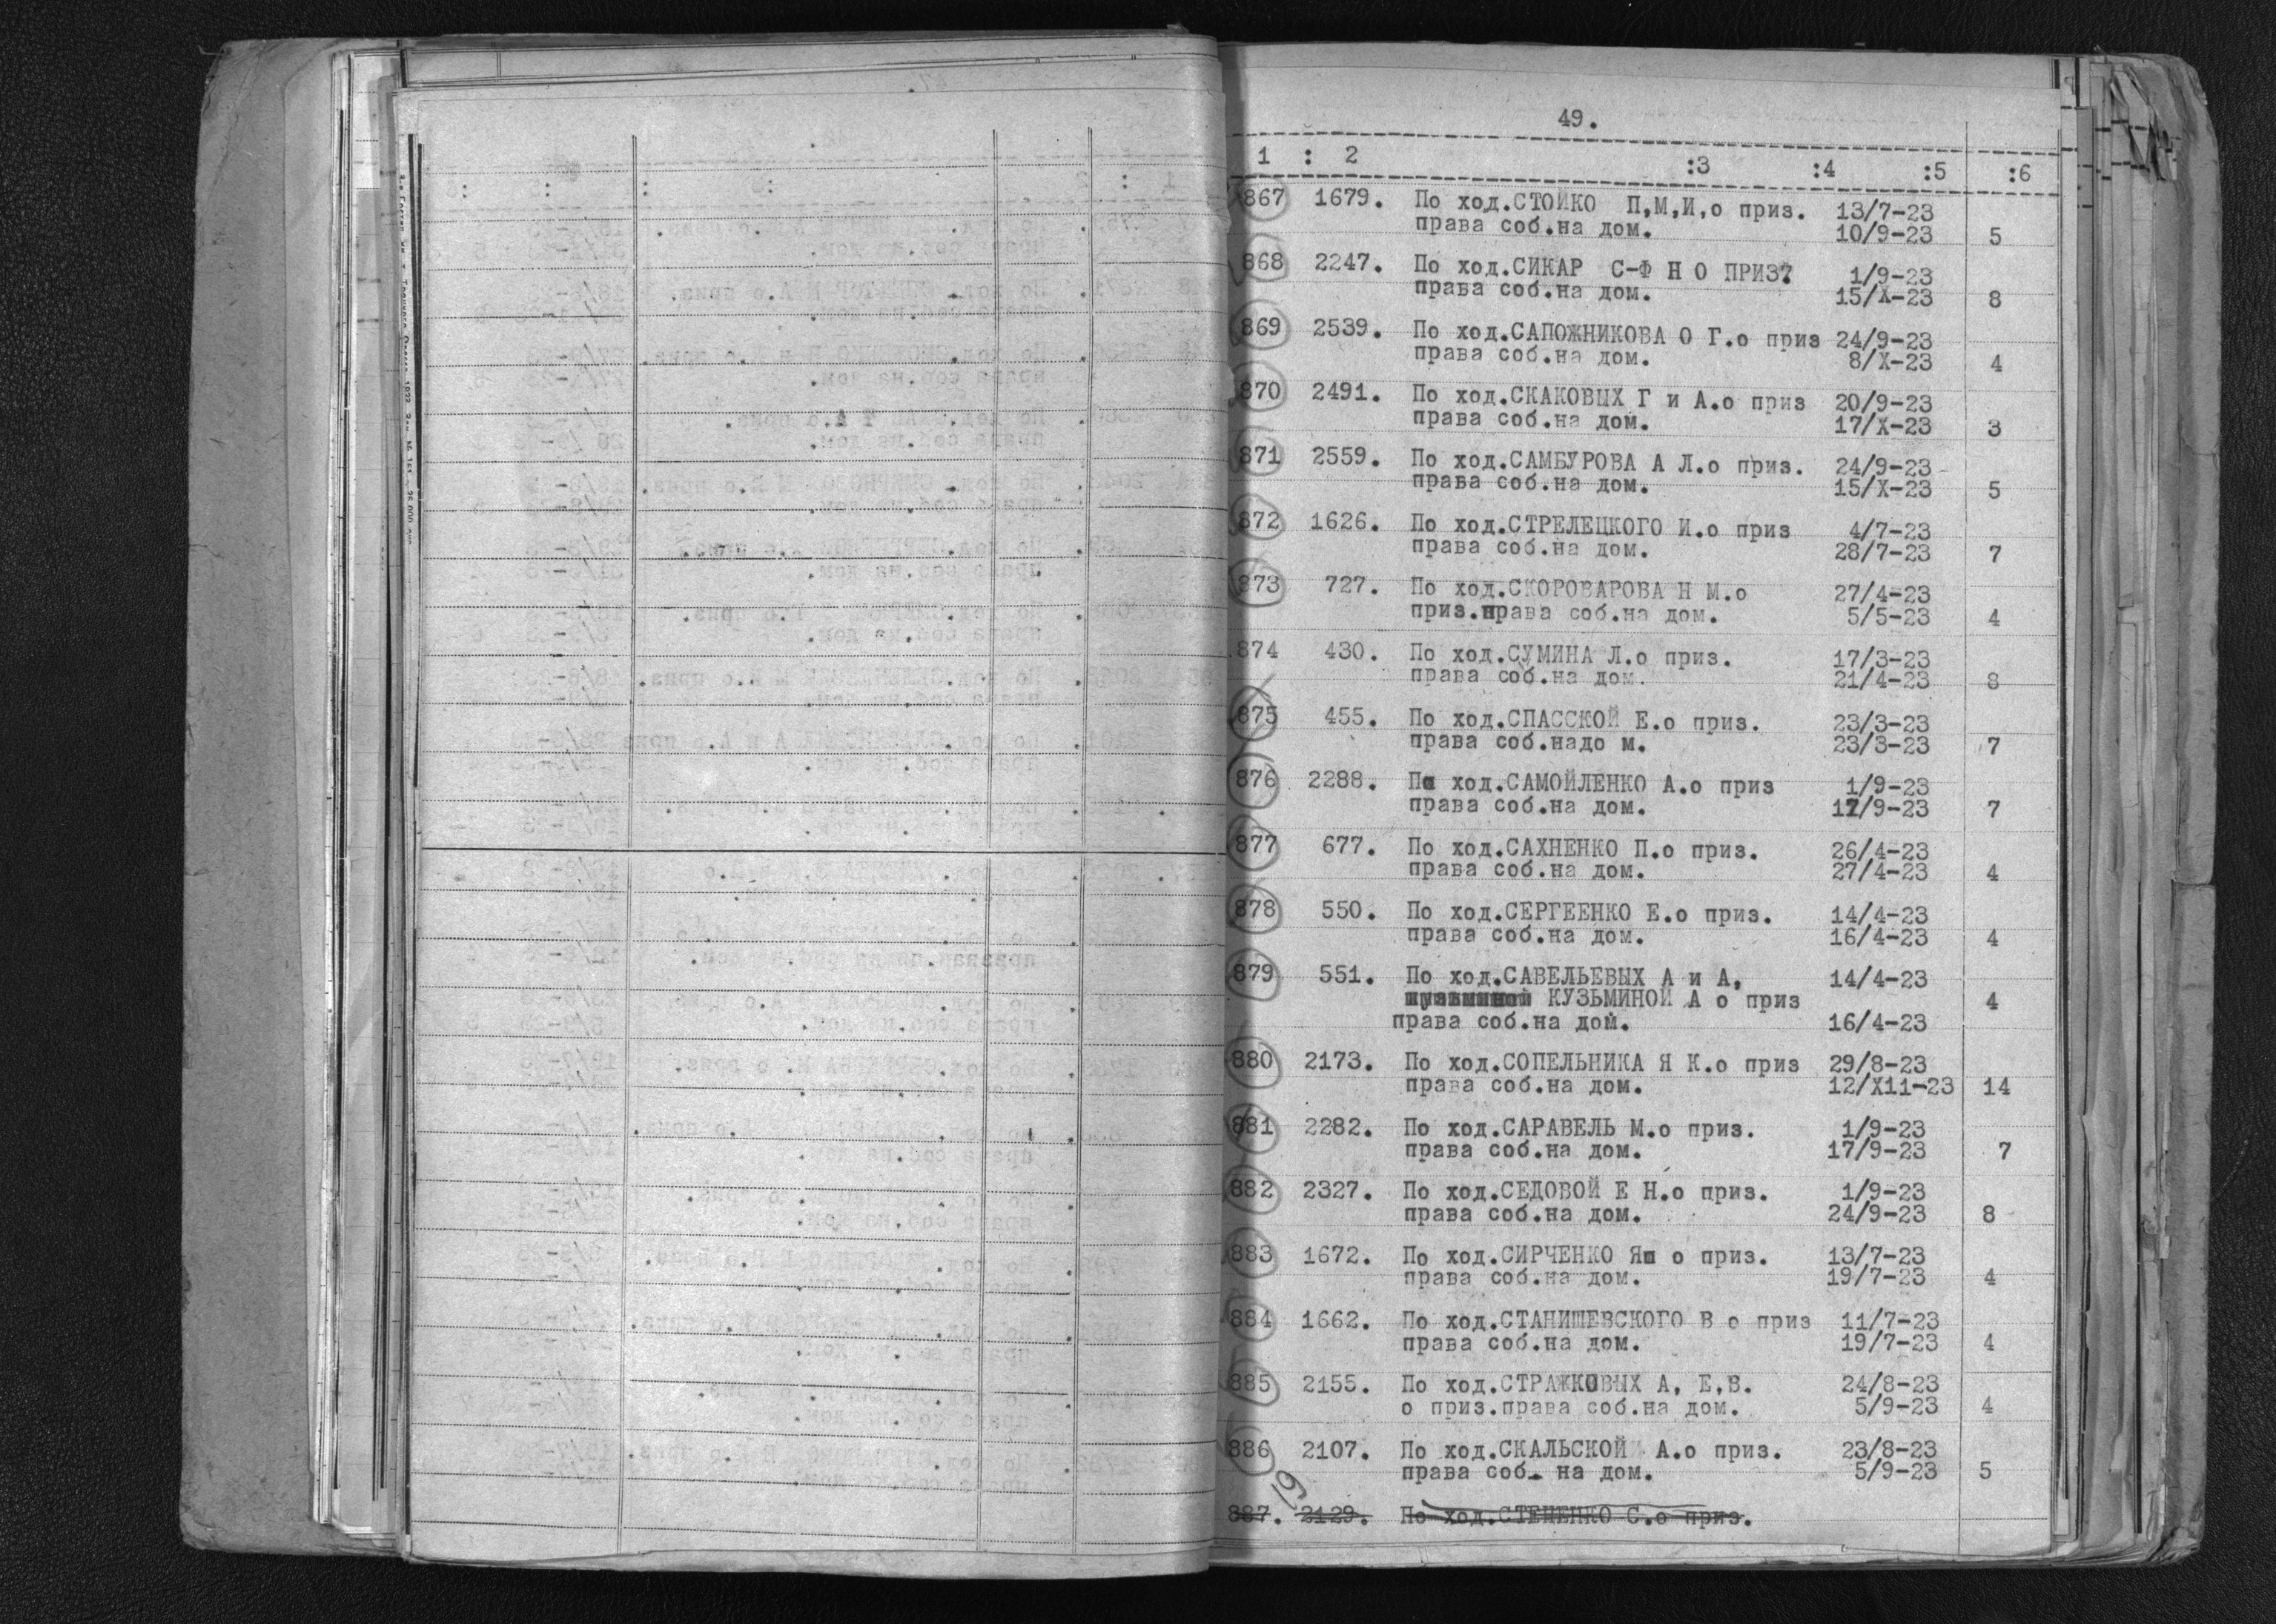 49.
1 : 2 :3 :4 :5 :6
867 1679. По ход.СТОЙКО П,М,И,о приз. 13/7-23
права соб.на дом. 10/9-23 5
868 2247. По ход.СИКАР С-Ф Н О ПРИЗ. 1/9-23
права соб.на дом. 15/X-23 8
869 2539. По ход.САПОЖНИКОВА О Г.о приз 24/9-23
права соб.на дом. 8/X-23 4
870 2491. По ход.СКАКОВЫХ Г и А.о приз 20/9-23
права соб.на дом. 17/X-23 3
871 2559. По ход.САМБУРОВА А Л.о приз. 24/9-23
права соб.на дом. 15/X-23 5
872 1626. По ход.СТРЕЛЕЦКОГО И.о приз 4/7-23
права соб.на дом. 28/7-23 7
873 727. По ход.СКОРОВАРОВА Н М.о 27/4-23
приз.права соб.на дом. 5/5-23 4
874 430. По ход.СУМИНА Л.о приз. 17/3-23
права соб.на дом. 21/4-23 8
875 455. По ход.СПАССКОЙ Е.о приз. 23/3-23
права соб.надо м. 23/3-23 7
876 2288. По ход.САМОЙЛЕНКО А.о приз 1/9-23
права соб.на дом. 17/9-23 7
877 677. По ход.САХНЕНКО П.о приз. 26/4-23
права соб.на дом. 27/4-23 4
878 550. По ход.СЕРГЕЕНКО Е.о приз. 14/4-23
права соб.на дом. 16/4-23 4
879 551. По ход.САВЕЛЬЕВЫХ А и А, 14/4-23
КУЗЬМИНОЙ А о приз 4
права соб.на дом. 16/4-23
880 2173. По ход.СОПЕЛЬНИКА Я К.о приз 29/8-23
права соб.на дом. 12/X11-23 14
881 2282. По ход.САРАВЕЛЬ М.о приз. 1/9-23
права соб.на дом. 17/9-23 7
882 2327. По ход.СЕДОВОЙ Е Н.о приз. 1/9-23
права соб.на дом. 24/9-23 8
883 1672. По ход.СИРЧЕНКО Я о приз. 13/7-23
права соб.на дом. 19/7-23 4
884 1662. По ход.СТАНИШЕВСКОГО В о приз 11/7-23
права соб.на дом. 19/7-23 4
885 2155. По ход.СТРАЖКОВЫХ А, Е,В. 24/8-23
о приз.права соб.на дом. 5/9-23 4
886 2107. По ход.СКАЛЬСКОЙ А.о приз. 23/8-23
права соб. на дом. 5/9-23 5
19
887. 2129. По ход.СТЕЦЕНКО С.о приз.